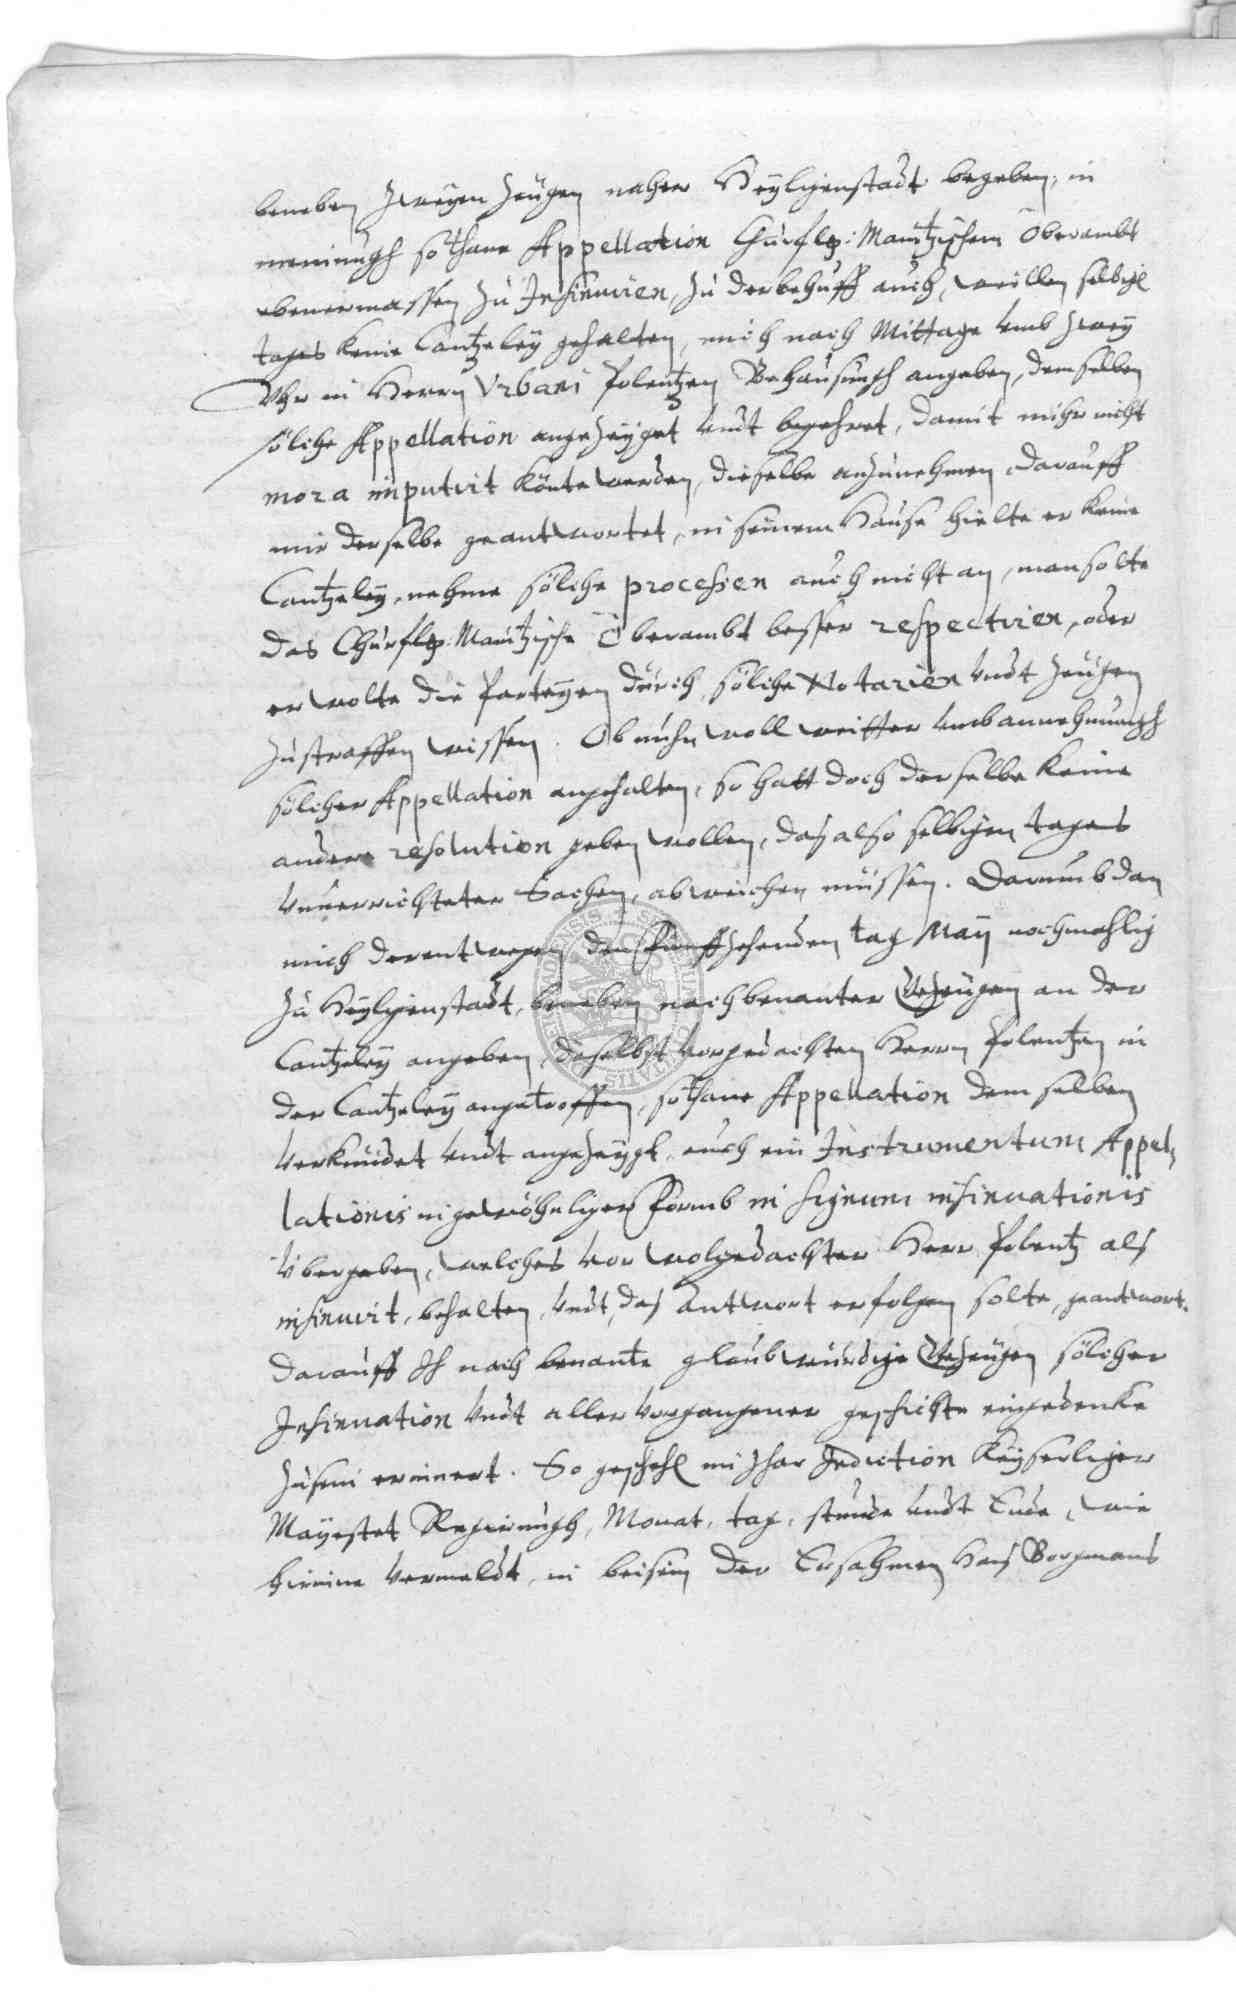 beneben zweyen Zeugen naher Heyligenstadt begeben, in
meinungh sothane Appellation Churflp: Maintzischem Oberambt
ebenermassen zu Insinuiren, zu der behuff auch, weillen selbigs
tages keine Cantzeley gehalten, mich nach Mittage umb zwey
Uhr in Herrn Urbani Polentzen Behausungh angeben, demselben
solche Appellation angezeyget undt begehret, damit mihr nicht
mora imputirt könte werden, dieselbe anzunehmen, darauff
mir derselbe geantwortet, in seinem Hause hielte er keine
Cantzeley, nehme solche processen auch nicht an, man solte
das Churflp: Maintzische Oberambt besser respectiren, oder
er wolte die Parteyen durch solche Notarien undt Zeugen
zustraffen wissen. Ob nuhn woll weitter umb annehmungh
solcher Appellation angehalten, so hatt doch derselbe keine
andere resolution geben wollen, das also selbigen tages
unverrichteter Sachen, abweichen müssen. Darumb dan
mich derentwegen den Funffzehenden tag Maij nochmahlig
zu Heyligenstadt, beneben nachbenanter Gezeugen an der
Cantzeley angeben, daselbst vorgedachten Herrn Polentzen in
der Cantzeley angetroffen, sothane Appellation demselben
verkundet undt angezeygt, auch ein Instrumentum Appel,
lationis in gewöhnliger Formb in signum insinuationis
Ubergeben, welches vor wolgedachter Herr Polentz als
insinuirt, behalten, undt, das Antwort erfolgen solte, geantwort.
darauff Ich nach benante glaubwurdige Gezeugen solcher
Insinuation undt aller vorgangener geschichte eingedenke
zusein erinnert. So geschehl im Jhar Indiction Keyserliger
Mayestet Regierungh, Monat, tag, stunde undt Ende, wie
hierinne vermeldt, in beisein der Ersahmen Hans Borgmans